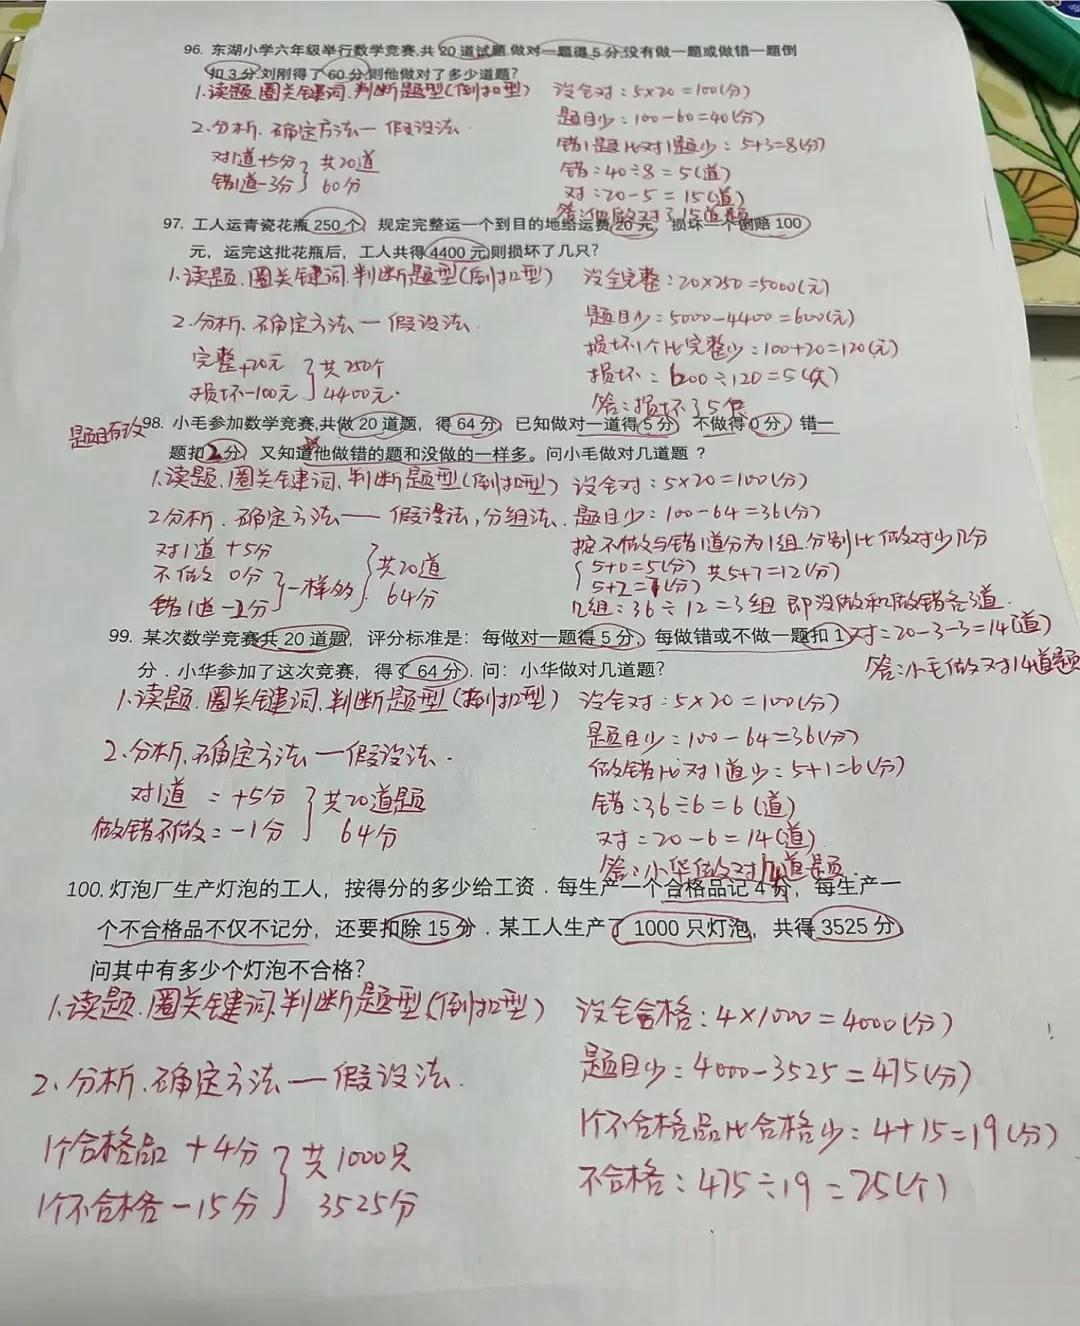 96. 东湖小学六年级举行数学竞赛,共 20 道试题.做对一题得 5 分,没有做一题或做错一题倒
扣 3 分.刘刚得了 60 分,则他做对了多少道题?
1.读题、圈关键词、判断题型(倒扣型)
2.分析、确定方法—假设法
对1道+5分
错1道-3分
共20道
60分
设全对:5×20=100(分)
题目少:100-60=40(分)
错1题比对1题少:5+3=8(分)
错:40÷8=5(道)
对:20-5=15(道)
答:他做对了15道题
97. 工人运青瓷花瓶 250 个, 规定完整运一个到目的地给运费 20 元, 损坏一个倒赔 100
元, 运完这批花瓶后, 工人共得 4400 元,则损坏了几只?
1.读题、圈关键词、判断题型(倒扣型)
2.分析、确定方法—假设法.
完整+20元
损坏-100元
共250个
4400元.
设全完整:20×250=5000(元)
题目少:5000-4400=600(元)
损坏1个比完整少:100+20=120(元)
损坏:600÷120=5(只)
答:损坏了5只
题目有改
98. 小毛参加数学竞赛,共做 20 道题, 得 64 分, 已知做对一道得 5 分, 不做得 0 分, 错一
题扣 2 分, 又知道他做错的题和没做的一样多。问小毛做对几道题 ?
1.读题、圈关键词、判断题型(倒扣型)
2分析、确定方法——假设法,分组法.
对1道 +5分
不做 0分
错1道-2分
一样多
共20道
64分
设全对:5×20=100(分)
题目少:100-64=36(分)
把不做与错1道分为1组.分别比做对少几分
5+0=5(分)
5+2=7(分)
共5+7=12(分)
几组:36÷12=3组 即没做和做错各3道.
对:20-3-3=14(道)
答:小毛做对14道题
99. 某次数学竞赛共 20 道题, 评分标准是: 每做对一题得 5 分, 每做错或不做一题扣 1
分 . 小华参加了这次竞赛, 得了 64 分. 问: 小华做对几道题?
1.读题、圈关键词、判断题型(倒扣型)
2.分析、确定方法—假设法.
对1道 =+5分
做错不做=-1分
共20道题
64分
设全对:5×20=100(分)
题目少:100-64=36(分)
做错比对1道少:5+1=6(分)
错:36÷6=6(道)
对:20-6=14(道)
答:小华做对14道题.
100. 灯泡厂生产灯泡的工人, 按得分的多少给工资 . 每生产一个合格品记 4 分, 每生产一
个不合格品不仅不记分, 还要扣除 15 分 . 某工人生产了 1000 只灯泡, 共得 3525 分,
问其中有多少个灯泡不合格?
1.读题、圈关键词、判断题型(倒扣型)
2.分析、确定方法—假设法.
1个合格品 +4分
1个不合格-15分
共1000只
3525分
设全合格:4×1000=4000(分)
题目少:4000-3525=475(分)
1个不合格品比合格少:4+15=19(分)
不合格:475÷19=25(个)